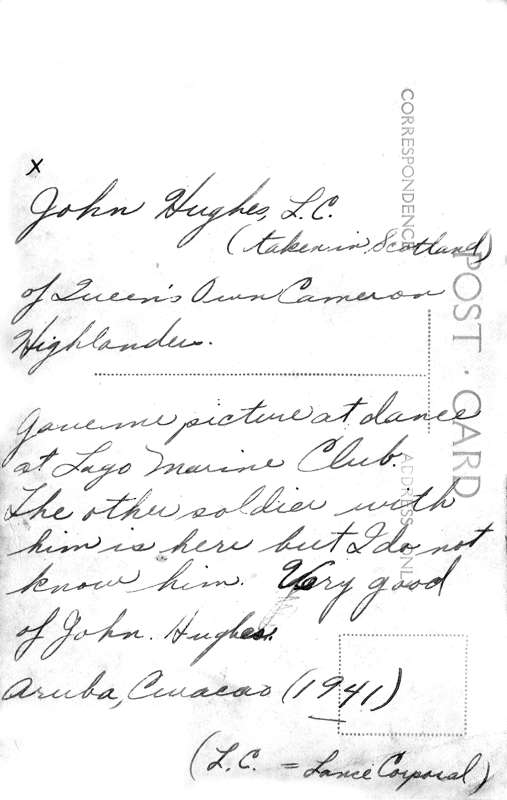 x
John Hughes, L.C.
(taken in Scotland)
of Queen's Own Cameron
Highlanders.
Gave me picture at dance
at Lago Marine Club.
The other soldier with
him is here but I do not
know him. Very good
of John Hughes.
Aruba, Curacao (1941)
(L.C. = Lance Corporal)
CORRESPONDENCE
POST CARD
ADDRESS ONLY